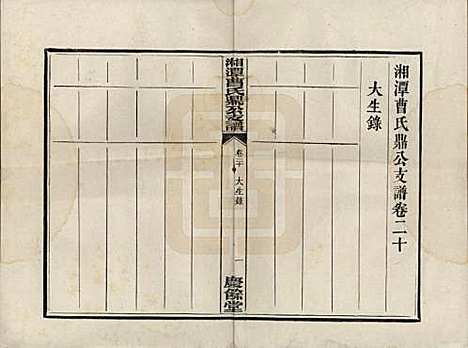 湘潭曹氏鼎公支譜卷二十
大生錄
湘潭曹氏鼎公支譜
卷二十
大生錄
一
慶餘堂